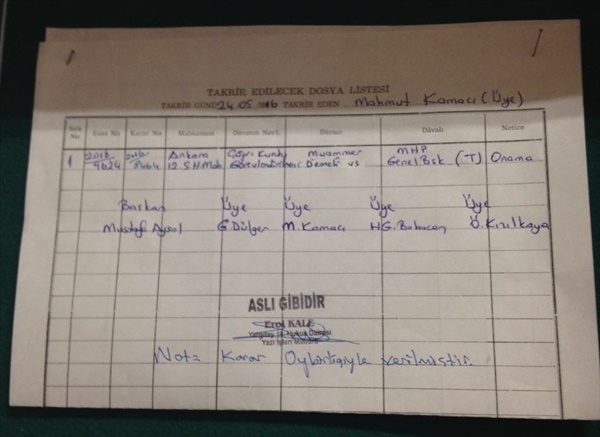 TAKRİR EDİLECEK DOSYA LİSTESİ
TAKRİR GÜNÜ 24.05.2016 TAKRİR EDEN Mahmut Kamacı (Üye)
Sıra No Esas No Karar No Mahkemesi Davanın Nev'i Davacı Davalı Netice
1 2016 2016 Ankara Çağrı Kurulu Muammer MHP Onama
9624 8464 12 S.H.Mah Görevlendirilmesi Demeli vs Genel Bşk (T)
Başkan Üye Üye Üye Üye
Mustafa Aysal G Dülger M. Kamacı H.G. Babacan Ö. Kızılkaya
ASLI GİBİDİR
Erol KALE
Yargıtay 18. Hukuk Dairesi
Yazı İşleri Müdürü
Not= Karar Oybirliğiyle verilmiştir.